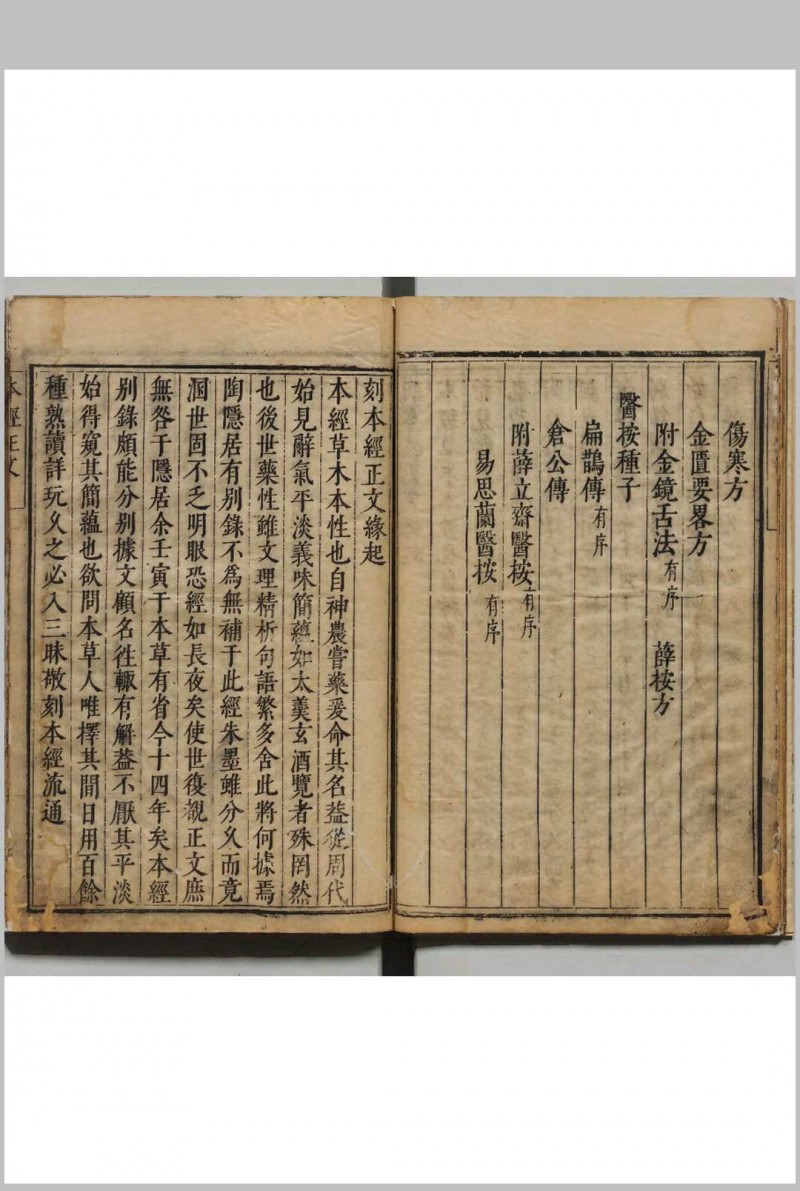 傷寒方
金匱要畧方
附金鏡舌法有序　薛按方
醫按種子
扁鵲傳有序
倉公傳
附薛立齋醫按有序
易思蘭醫按有序
刻本經正文緣起
本經草木本性也自神農嘗藥爰命其名葢從周代
始見辭氣平淡義味簡蘊如太羹玄酒覽者殊罔然
也後世藥性雖文理精析句語繁多舍此將何據焉
陶隱居有別錄不爲無補于此經朱墨雖分久而竟
溷世固不乏明眼恐經如長夜矣使世復覩正文庶
無咎于隱居余壬寅于本草有省今十四年矣本經
別錄頗能分別據文顧名徃輙有觧葢不厭其平淡
始得窺其簡蘊也欲問本草人唯擇其間日用百餘
種熟讀詳玩久之必入三昧敬刻本經流通
本經正文